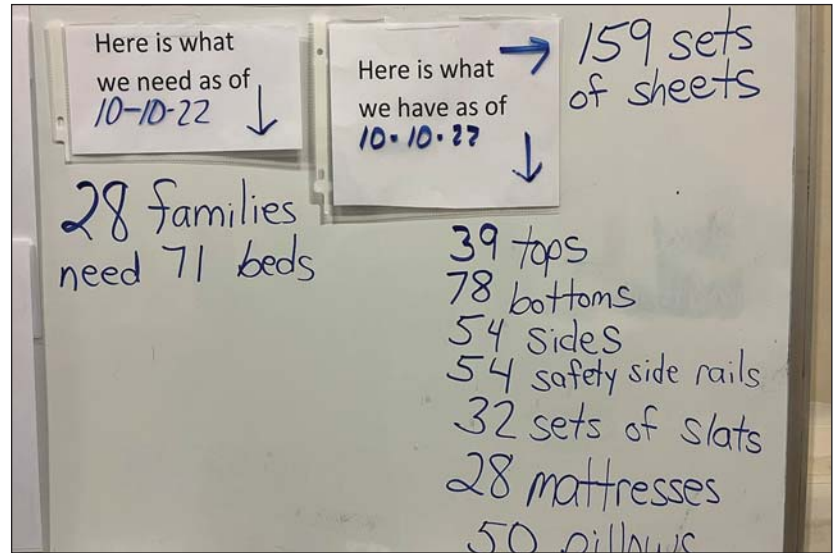 Here is what
we need as of
10-10-22
28 families
need 71 beds
Here is what
we have as of
10.10.22
159 sets
of sheets
39 tops
78 bottoms
54 sides
54 safety side rails
32 sets of slats
28 mattresses
50 pillows